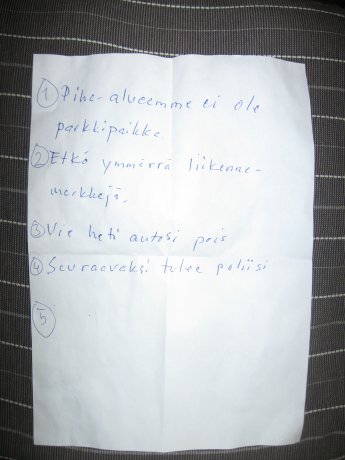 ① Piha-alueemme ei ole
parkkipaikka.
② Etkö ymmärrä liikenne-
merkkejä.
③ Vie heti autosi pois
④ Seuraavaksi tulee poliisi
⑤